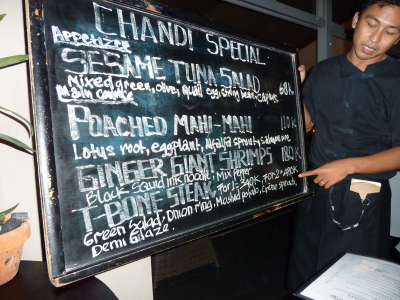 CHANDI SPECIAL
Appetizer
SESAME TUNA SALAD
Mixed green, olive, quail egg, string bean, capers 60K
Main Course
POACHED MAHI-MAHI 110K
Lotus root, eggplant, Alfalfa sprout, salmon roe
GINGER GIANT SHRIMPS 180K
Black squid ink noodle, Mix Pepper
T-BONE STEAK For 1-340K, For 2-480K
Green Salad, Onion ring, Mashed potato, Crème spinach,
Demi Glaze